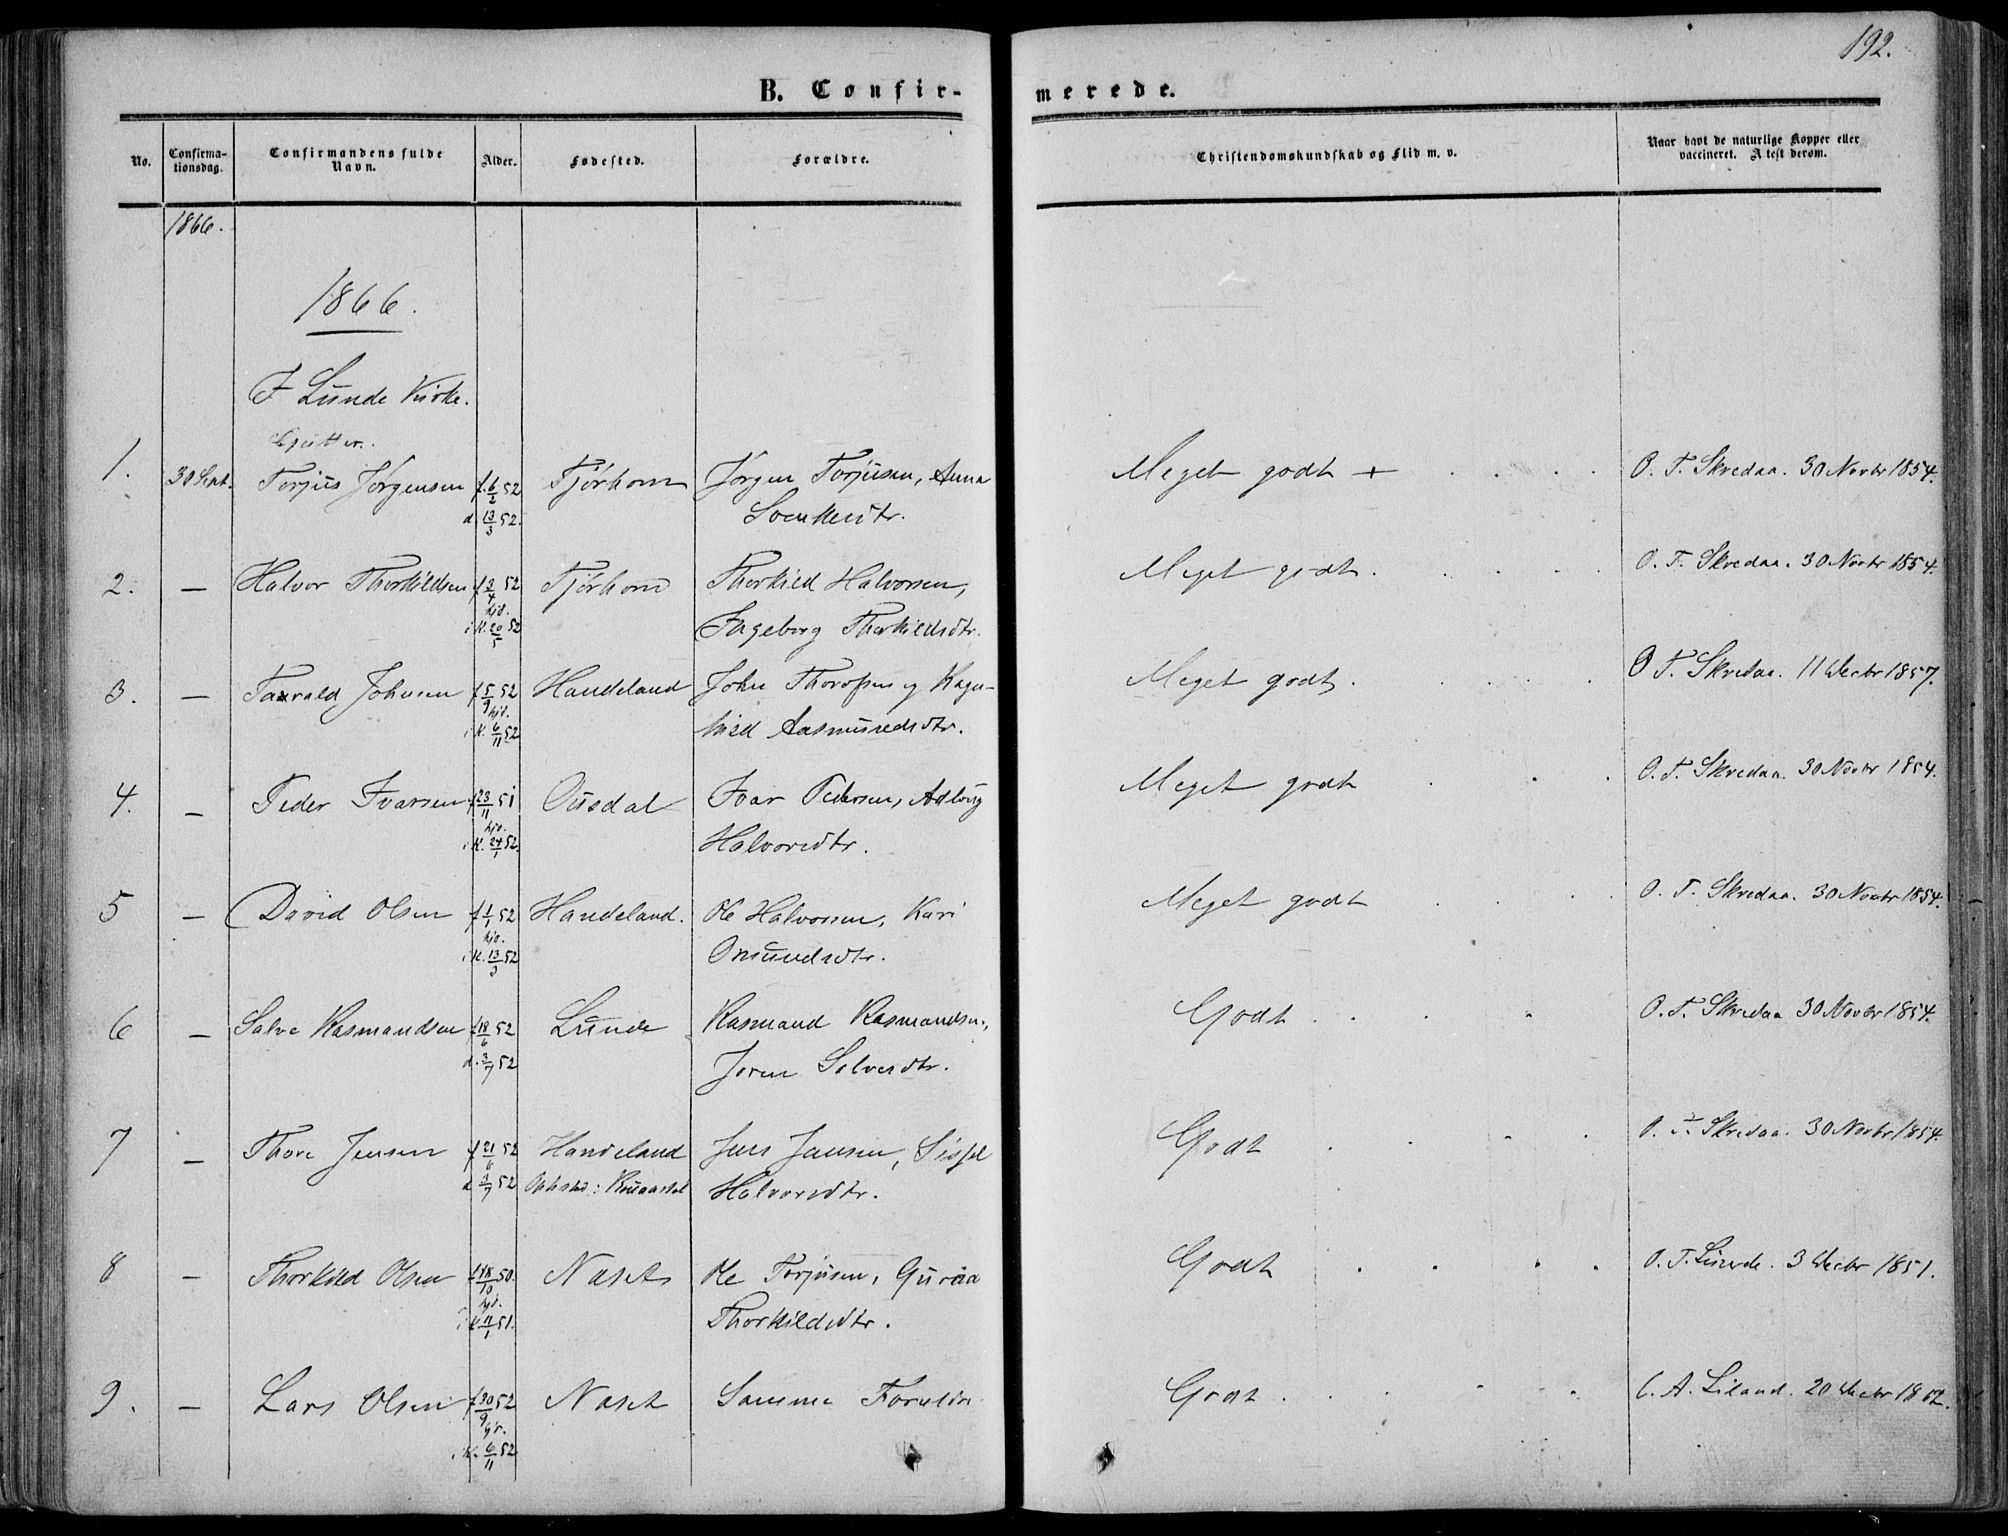 192.
B. Confir-
merede.
No.
Confirma-
tionsdag.
Confirmandens fulde
Navn.
Alder.
Fødested.
Forældre.
Christendomskundskab og Flid m. v.
Naar havt de naturlige Kopper eller
vaccineret. Atest derom.
1866.
1866.
I Lunde Kirke.
Gutter.
1. 30 Sept. Torjus Jørgensen f. 6/2 52 Tjørhom Jørgen Torjusen, Anna Meget godt + O. T. Skredaa. 30 Novbr 1854.
d. 13/3 52.
2. — Halvor Thorkildsen f 3/4 52 Tjørhom Thorkild Halvorsen, Meget godt. O. T. Skredaa. 30 Novbr 1854.
hjd.
i K. 20/5 52 Ingeborg Thorkildsdtr.
3. — Taarald Johnsen f 5/9 52 Handeland John og Ragn- Meget godt. O T. Skredaa. 11 Decbr 1857.
hjd.
i K. 6/11 52 hild Aasmundsdtr.
4. — Peder Ivarsen f 23/11 51 Ousdal Ivar Pedersen, Adlaug Meget godt O. T. Skredaa. 30 Novbr 1854.
hjd.
i K. 24/1 52. Halvorsdtr.
5 — David Olsen f 1/1 52 Handeland. Ole Halvorsen, Kari Meget godt O. T. Skredaa. 30 Novbr 1854.
hjd.
i K. 13/3 52 Omundsdtr.
6 — Salve Rasmundsen f 18/6 52 Lunde Rasmund Rasmundsen, Godt. O. T. Skredaa 30 Novbr 1854.
d. 3/7 52 Joren Salvesdtr.
7 — Thore Jensen f 21/6 52 Handeland Jens Jansen, Sissel Godt O. T. Skredaa. 30 Novbr 1854.
d 3/7 52 Opholds: Halvorsdtr.
8 — Thorkild Olsen f 18/10 50. Naset Ole Torjusen, Guroa Godt O. T. Lunde. 3 Decbr 1851.
hjd.
i K 11/1 51. Thorkildsdtr.
9. — Lars Olsen f 30/9 52 Naset Samme Forældre Godt. A. Liland. 20 Decbr 1852.
i K. 6/11 52